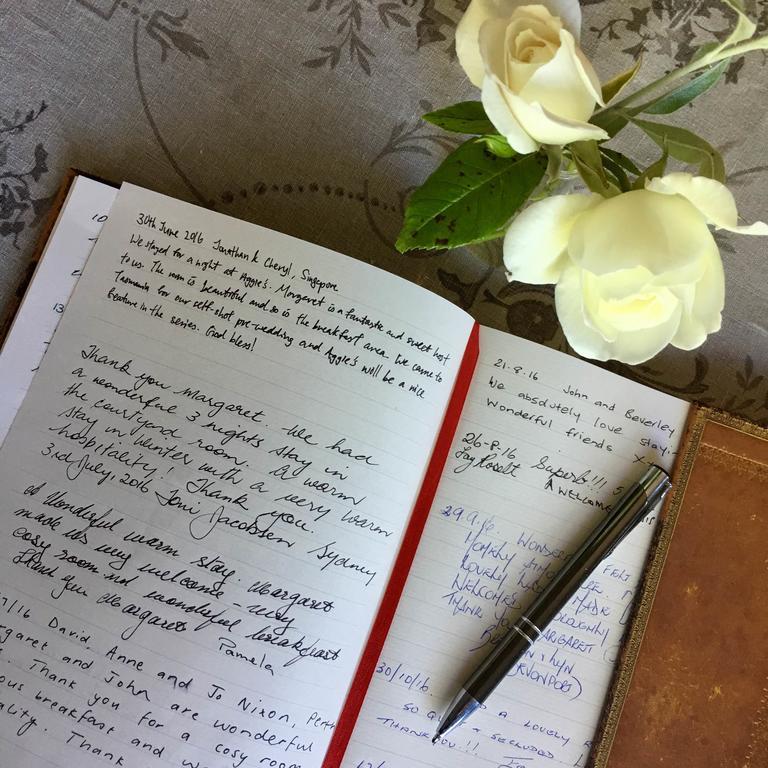 30th June 2016 Jonathan & Cheryl, Singapore
We stayed for a night at Aggie's. Margaret is a fantastic and sweet host
to us. The room is beautiful and so is the breakfast area. We came to
Tasmania for our self-shot pre-wedding and Aggie's will be a nice
feature in the series. God bless!
Thank you Margaret. We had
a wonderful 3 nights stay in
the courtyard room. A warm
stay in winter with a very warm
hospitality! Thank you.
3rd July, 2016 Toni Jacobsen Sydney
A Wonderful warm stay. Margaret
made us very welcome - very
cosy room and wonderful breakfast
Thank you Margaret
Pamela
7/16 David, Anne and Jo Nixon, Perth
Margaret and John are wonderful
Thank you for a cosy room
breakfast and
Thank
10
13
21.8.16 John and Beverley
We absolutely love
Wonderful friends x
26-8.16 Superb!!! 5
A WELCOME
29.9.16. WONDER
LOVELY
MADE
WELCOME
THANK MARGARET
LYN
(DEVONPORT)
30/10/16. A LOVELY
SO SECLUDED
THANK YOU!!